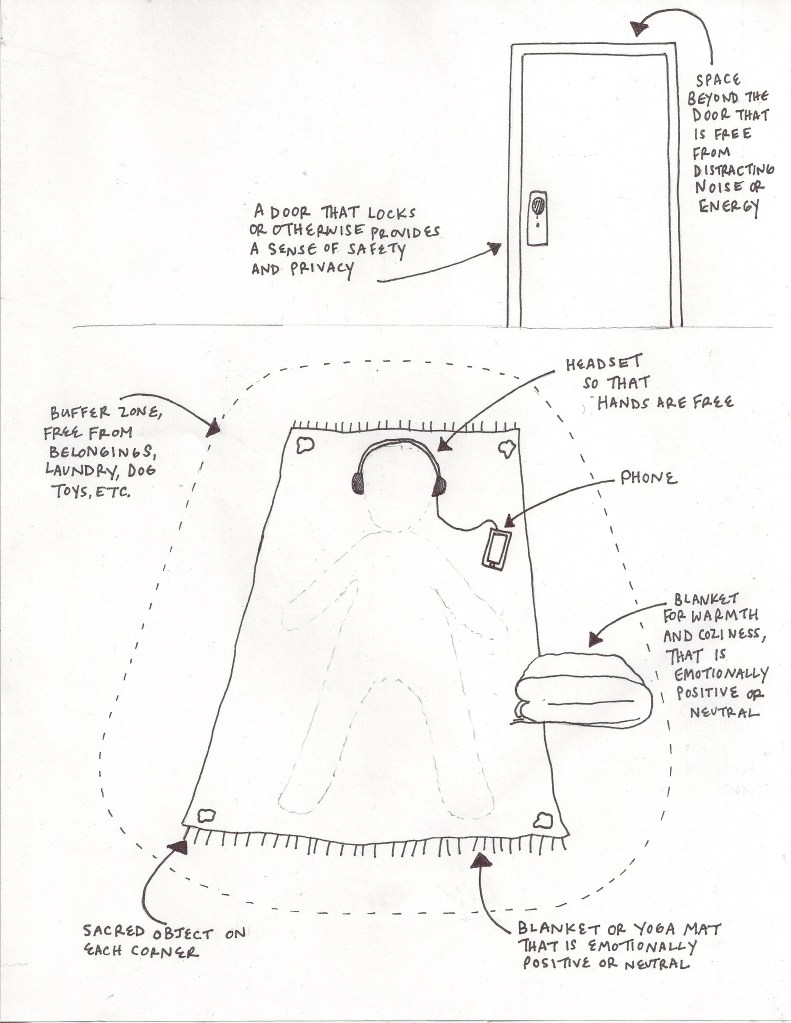 SPACE
BEYOND THE
DOOR THAT
IS FREE
FROM
DISTRACTING
NOISE OR
ENERGY
A DOOR THAT LOCKS
OR OTHERWISE PROVIDES
A SENSE OF SAFETY
AND PRIVACY
HEADSET
SO THAT
HANDS ARE FREE
BUFFER ZONE,
FREE FROM
BELONGINGS,
LAUNDRY, DOG
TOYS, ETC.
PHONE
BLANKET
FOR WARMTH
AND COZINESS,
THAT IS
EMOTIONALLY
POSITIVE OR
NEUTRAL
SACRED OBJECT ON
EACH CORNER
BLANKET OR YOGA MAT
THAT IS EMOTIONALLY
POSITIVE OR NEUTRAL